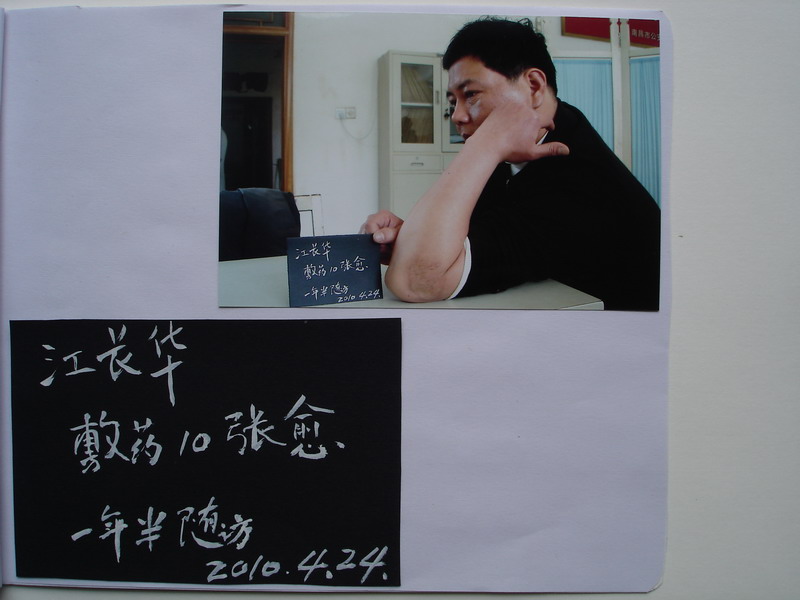 南昌市公
江长华
敷药10张愈
一年半随访
2010.4.24.
江长华
敷药10张愈、
一年半随访
2010.4.24.